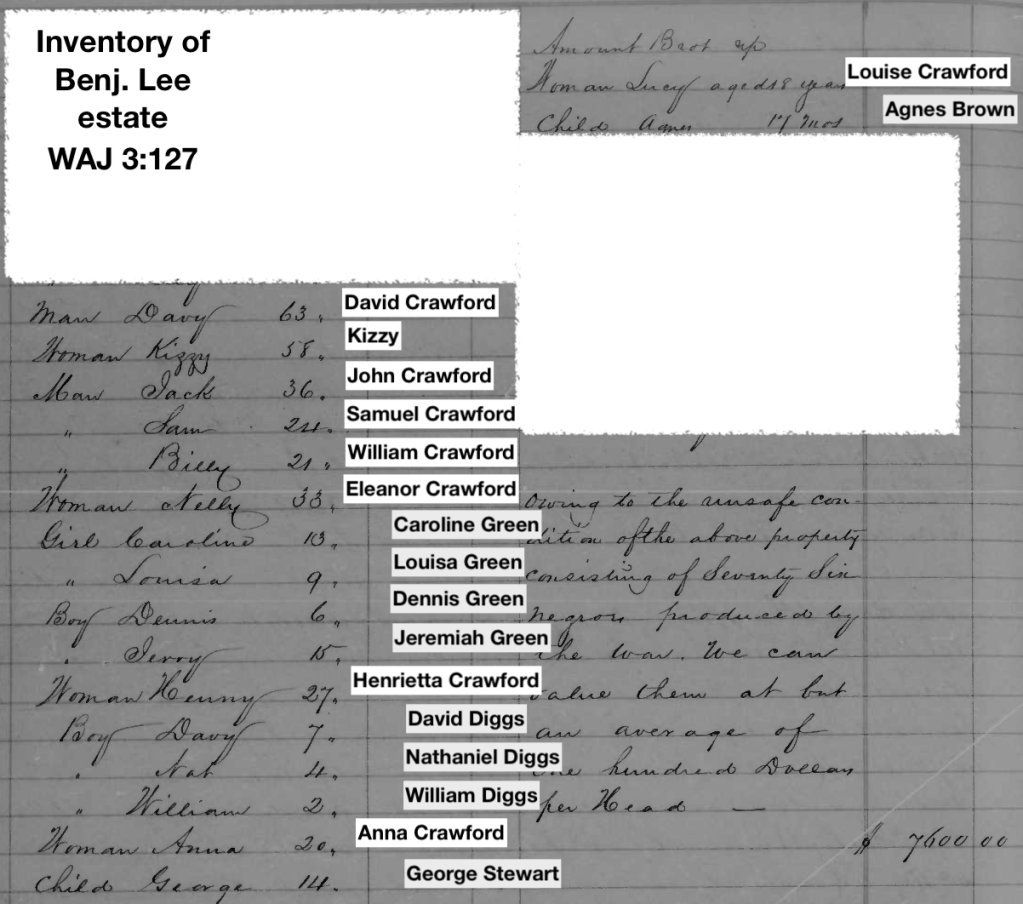 Inventory of
Benj. Lee
estate
WAJ 3:127
Man Davy 63, David Crawford
Woman Kizzy 58, Kizzy
Man Jack 36. John Crawford
" Sam 24. Samuel Crawford
" Billy 21, William Crawford
Woman Nelly 33, Eleanor Crawford
Girl Caroline 13, Caroline Green
" Louisa 9, Louisa Green
Boy Dennis 6, Dennis Green
" Jerry 15, Jeremiah Green
Woman Henny 27, Henrietta Crawford
Boy Davy 7, David Diggs
" Nat 4, Nathaniel Diggs
" William 2, William Diggs
Woman Anna 20, Anna Crawford
Child George 14. George Stewart
Amount Brot up
Woman Lucy aged 18 years Louise Crawford
Child Agnes 17 mos Agnes Brown
Owing to the unsafe con-
dition of the above property
consisting of Seventy Six
negros produced by
the War. We can
value them at but
an average of
one hundred Dollars
per Head —
$ 7600 00